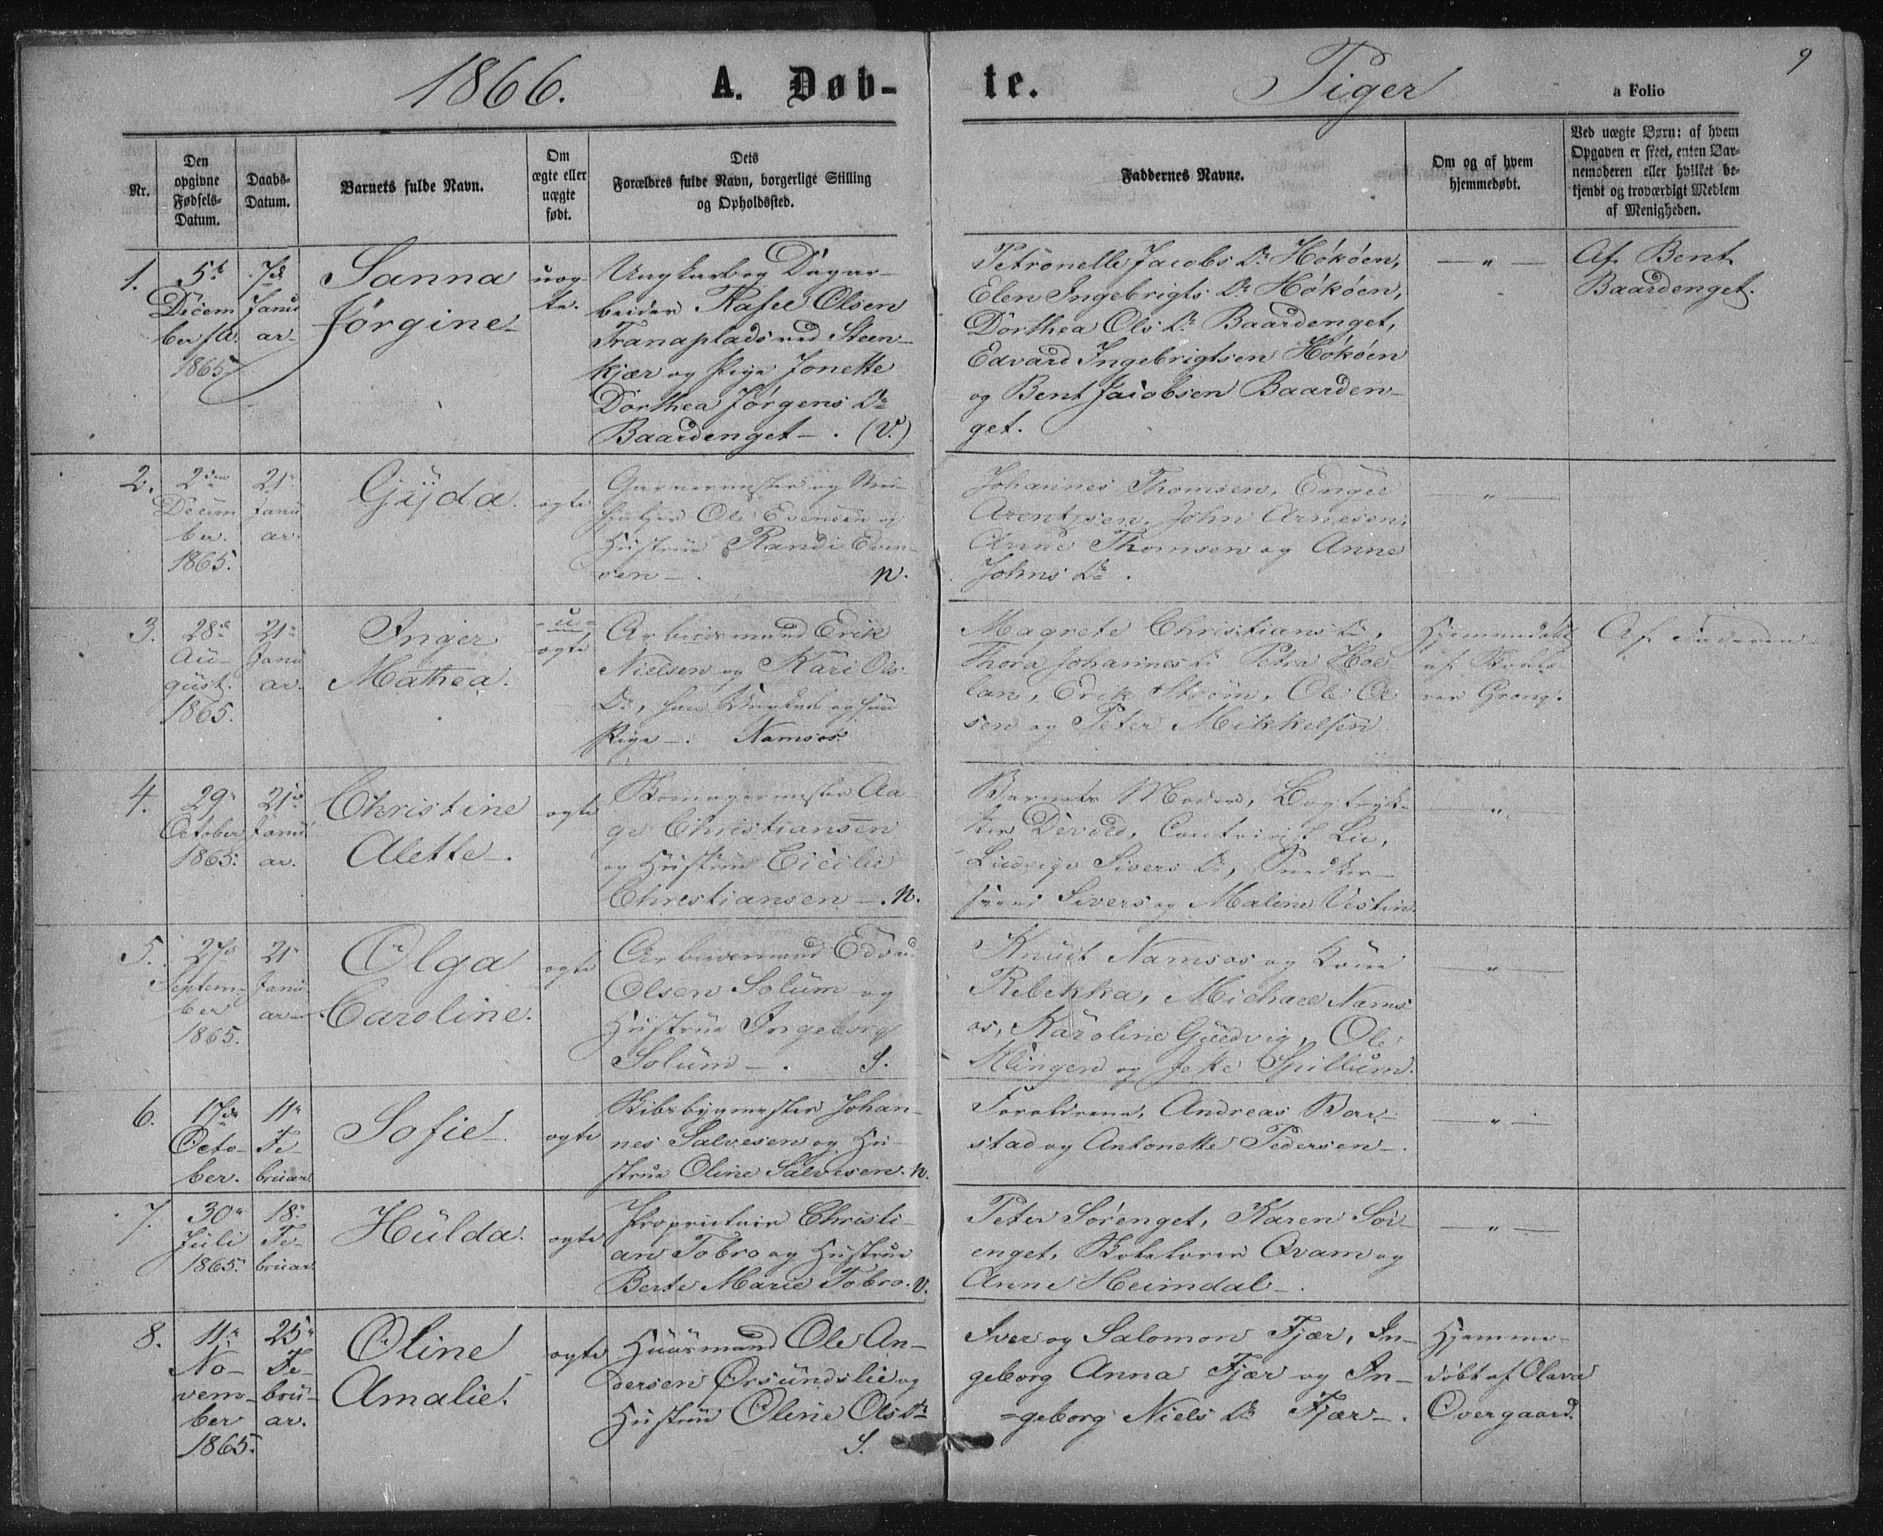 1866. A. Døb-
te. Piger
a Folio
9
Nr.
Den
opgivne
Fødsels-
Datum.
Daabs-
Datum.
Barnets fulde Navn.
Om
ægte eller
uægte
født.
Dets
Forældres fulde Navn, borgerlige Stilling
og Opholdssted.
Faddernes Navne.
Om og af hvem
hjemmedøbt.
Ved uægte Børn: af hvem
Opgaven er skeet, enten Bar-
nemoderen eller hvilket be-
kjendt og troværdigt Medlem
af Menigheden.
1.
5te
Decem
ber
1865
7de
Janu
ar
Sanna
Jørgine
uæg-
te.
Ungkarl og Dagar-
beider Olsen
Tranaplads ved Steen-
kjær og Pige Jonette
Dorthea Jørgens Dr
Baardenget. (V.)
Petronelle Jacobs Dr Høkøen,
Elen Ingebrigts Dr Høkøen,
Dorthea Ols Dr Baardenget,
Edvard Ingebrigtsen Høkøen
og Bent Jacobsen Baarden-
get.
— " —
Af Bent
Baardenget.
2.
2den
Decem
ber.
1865.
21
Janu
ar.
Gyda.
ægte
Garvermester og
Ole Evensen og
Hustrue Randi Even-
sen. N.
Johannes Thomsen,
Arentzen, John Arnesen,
Thomsen og Anne
Johns Dr.
— " —
3.
28de
Au-
gust.
1865.
21
Janu
ar.
Inger
Mathea.
u-
ægte
Arbeidsmand Erik
Nielsen og Kari Ols
Dr, han og hun
Pige. Namsos.
Magrete Christians Dr,
Thora Johannes Dr Petra Hol-
lan, Erik Strøm, Ole Ol-
sen og Peter Mikkelsen
Hjemmedøbt
af
Grong.
Af Faderen
4.
29
October
1865.
21de
Janu
ar.
Christine
Alette.
ægte
Aa-
ge Christiansen
og Hustrue Cicilie
Christiansen. N.
Barnets Moder, Bogtryk-
ker Lie,
Ludvig Sivers Dr, Snedker-
svend Sivers og Maline Vestin
— " —
5.
27de
Septem-
ber
1865.
21
Janu-
ar
Olga
Caroline.
ægte
Arbeidsmand
Olsen Solum og
Hustrue Ingeborg
Solum. S.
Knut Namsos og Kone
Rebekka, Michael Nams
os, Karoline Gudvig, Ole
Klingen og Jette Spillum.
— " —
6.
17de
Octo-
ber.
11
Fe-
bruar
Sofie
ægte
Skibsbygmester Johan-
nes Salvesen og Hu
strue Oline Salvesen. N.
Forældrene, Andreas Bar-
stad og Antonette Pedersen.
— " —
7.
30
Juli
1865.
18
Fe-
bruar.
Hulda.
ægte
Proprietair Christi-
an Tobro og Hustrue
Berte Marie Tobro. V.
Peter Sørenget, Karen Sør-
enget, Qvam og
Anne Heimdal.
— " —
8.
11
No-
vem-
ber
1865.
25
Fe-
bru-
ar.
Oline
Amalie.
ægte
Huusmand Ole An-
dersen Ørsundslie og
Hustrue Oline Ols Dr
S.
Iver og Salomon Fjær, In-
geborg Anna Fjær og In-
geborg Niels Dr Fjær.
Hjemme-
døbt af Olava
Overgaard.